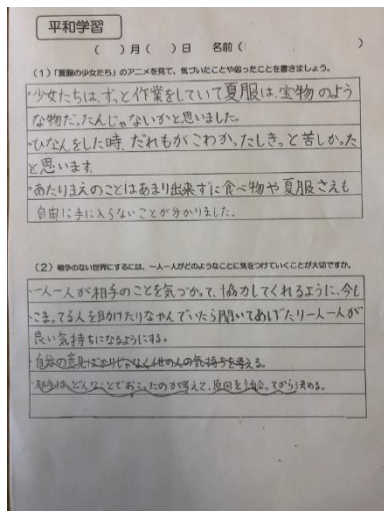 平和学習
(　)月(　)日　名前(　　　)
(1)「夏服の少女たち」のアニメを見て、気づいたことや思ったことを書きましょう。
・少女たちは、ずっと作業をしていて夏服は、宝物のよう
な物だったんじゃないかと思いました。
・ひなんをした時、だれもがこわかったしきっと苦しかった
と思います。
・あたりまえのことはあまり出来ずに食べ物や夏服さえも
自由に手に入らないことが分かりました。
(2)戦争のない世界にするには、一人一人がどのようなことに気をつけていくことが大切ですか。
・一人一人が相手のことを気づかって、協力してくれるように、今も
こまってる人を助けたりなやんでいたら聞いてあげたり一人一人が
良い気持ちになるようにする。
・自分の意見ばかりじゃなく他の人の気持ちを考える。
どんなことでおこったのか考えて、原因を話し合ってから決める。